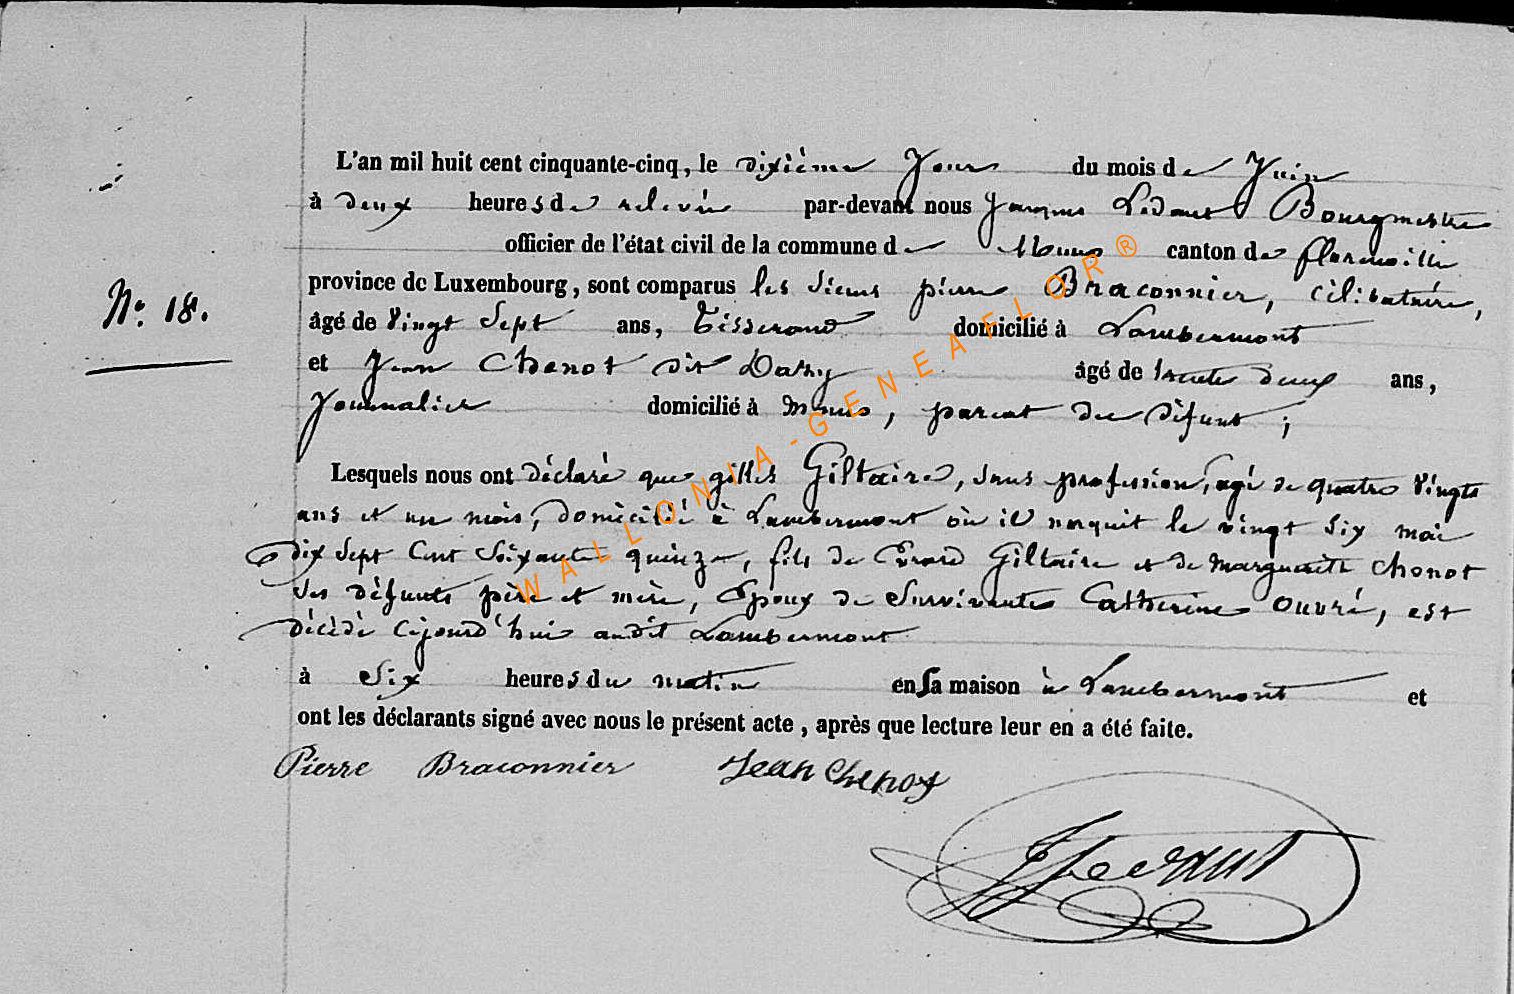 L'an mil huit cent cinquante-cinq, le dixième Jour du mois de Juin
à deux heures de relevée par-devant nous Jacques Ledant Bourgmestre
officier de l'état civil de la commune de Muno canton de florenville
province de Luxembourg, sont comparus les Sieurs pierre Braconnier, célibataire,
âgé de Vingt Sept ans, Tisserand domicilié à Lambermont
et Jean Chenot dit Dathy âgé de trente deux ans,
Journalier domicilié à Muno, parent du défunt;
Lesquels nous ont déclaré que gilles Giltaire, sans profession, agé de quatre Vingts
ans et un mois, domicilié à Lambermont où il naquit le vingt six mai
dix Sept Cent Soixante quinze, fils de Evrard Giltaire et de Marguerite Chenot
Ses défunts père et mère, Epoux de Survivante Catherine Ouvré, est
décédé cejourd'hui audit Lambermont
N°. 18.
à Six heures du matin en Sa maison à Lambermont et
ont les déclarants signé avec nous le présent acte, après que lecture leur en a été faite.
Pierre Braconnier Jean Chenot
JLedant
WALLONIA-GENEAFLOR®